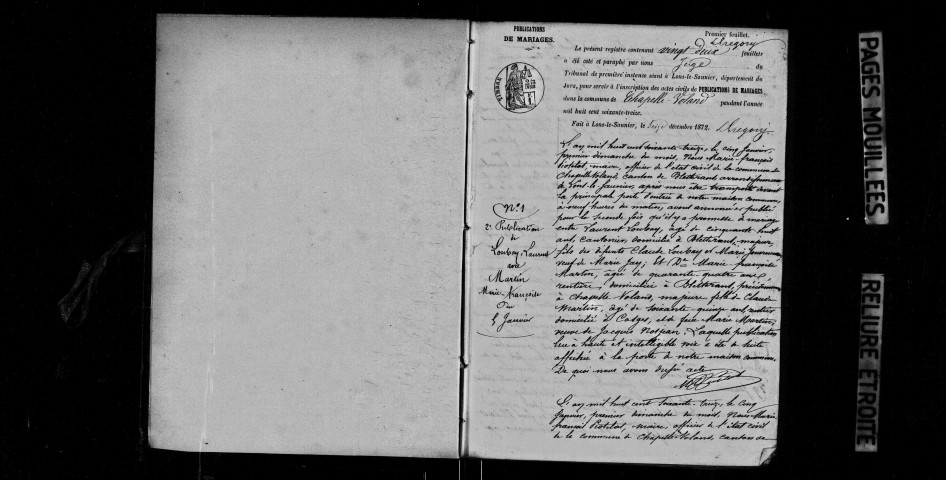 PUBLICATIONS
DE MARIAGES.
Premier feuillet.
Le présent registre contenant vingt deux feuillets
a été coté et paraphé par nous Juge du
Tribunal de première instance séant à Lons-le-Saunier, département du
Jura, pour servir à l'inscription des actes civils de PUBLICATIONS DE MARIAGES
dans la commune de Chapelle Voland pendant l'année
mil huit cent soixante-treize.
Fait à Lons-le-Saunier, le seize décembre 1872.
TIMBRE
L'an mil huit cent soixante-treize, le cinq Janvier,
premier dimanche du mois, Nous Marie-françois
maire, officier de l'état civil de la commune de
Chapelle-Voland, canton de Bletterans, arrondissement
de Lons-le-Saunier, après nous être transporté devant
la principale porte d'entrée de notre maison commune,
à neuf heures du matin, avons annoncé et publié
pour la seconde fois qu'il y a promesse de mariage
entre Laurent Loubay, âgé de cinquante huit
ans, cantonier, domicilié à Bletterans, majeur,
fils des défunts Claude Loubay et Marie
veuf de Marie Jay; Et Dme Marie françoise
Martin, âgée de quarante quatre ans,
rentière, domiciliée à Bletterans, précédemment
à Chapelle Voland, majeure, fille de Claude
Martin, âgé de soixante quinze ans,
domicilié à Cosges, et de feue Marie
veuve de Jacques . Laquelle publication
lue à haute et intelligible voix a été de suite
affichée à la porte de notre maison commune.
De quoi nous avons dressé acte
No 1
2e Publication
de
Loubay Laurent
avec
Martin
Marie-Françoise
Du
5 Janvier
L'an mil huit cent soixante-treize, le cinq
Janvier, premier dimanche du mois, Nous Marie
françois maire, officier de l'état civil
de la commune de Chapelle-Voland, canton de
PAGES MOUILLEES
RELIURE ETROITE